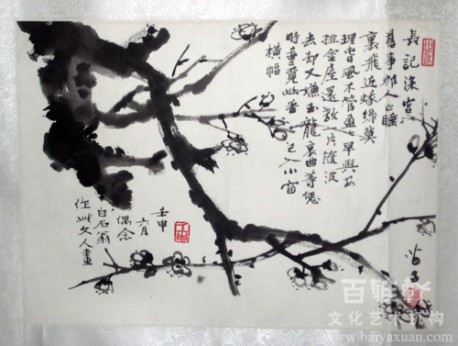 長記深宮
舊事那人正睡
裏飛近蛾綠莫
理春風不管盈盈早與安
排金屋還教一片隨波
去却又嫌玉龍哀曲等恁
時重覓幽香已入小窗
橫幅
壬申
六月
偶念
白石翁
作此文人畫
百雅轩
文化艺术机构
www.baryaxuan.com